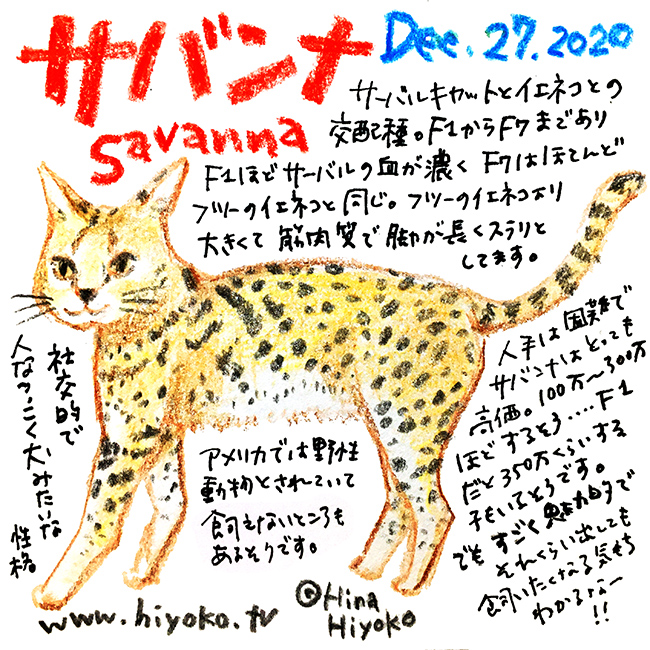 サバンナ
Dec.27.2020
savanna
サーバルキャットとイエネコとの
交配種。F1からF7まであり
F1ほどサーバルの血が濃く F7はほとんど
フツーのイエネコと同じ。フツーのイエネコより
大きくて筋肉質で脚が長くスラリと
してます。
人手は困難で
サバンナはとっても
高価。100万〜300万
ほどするそう....F1
だと350万くらいする
子もいるそうです。
でもすごく魅力的で
それくらい出しても
飼いたくなる気もち
わかるなー
!!
社交的で
人なつっこく犬みたいな
性格
アメリカでは野性
動物とされていて
飼えないところも
あるそうです。
www.hiyoko.tv
©Hina
Hiyoko